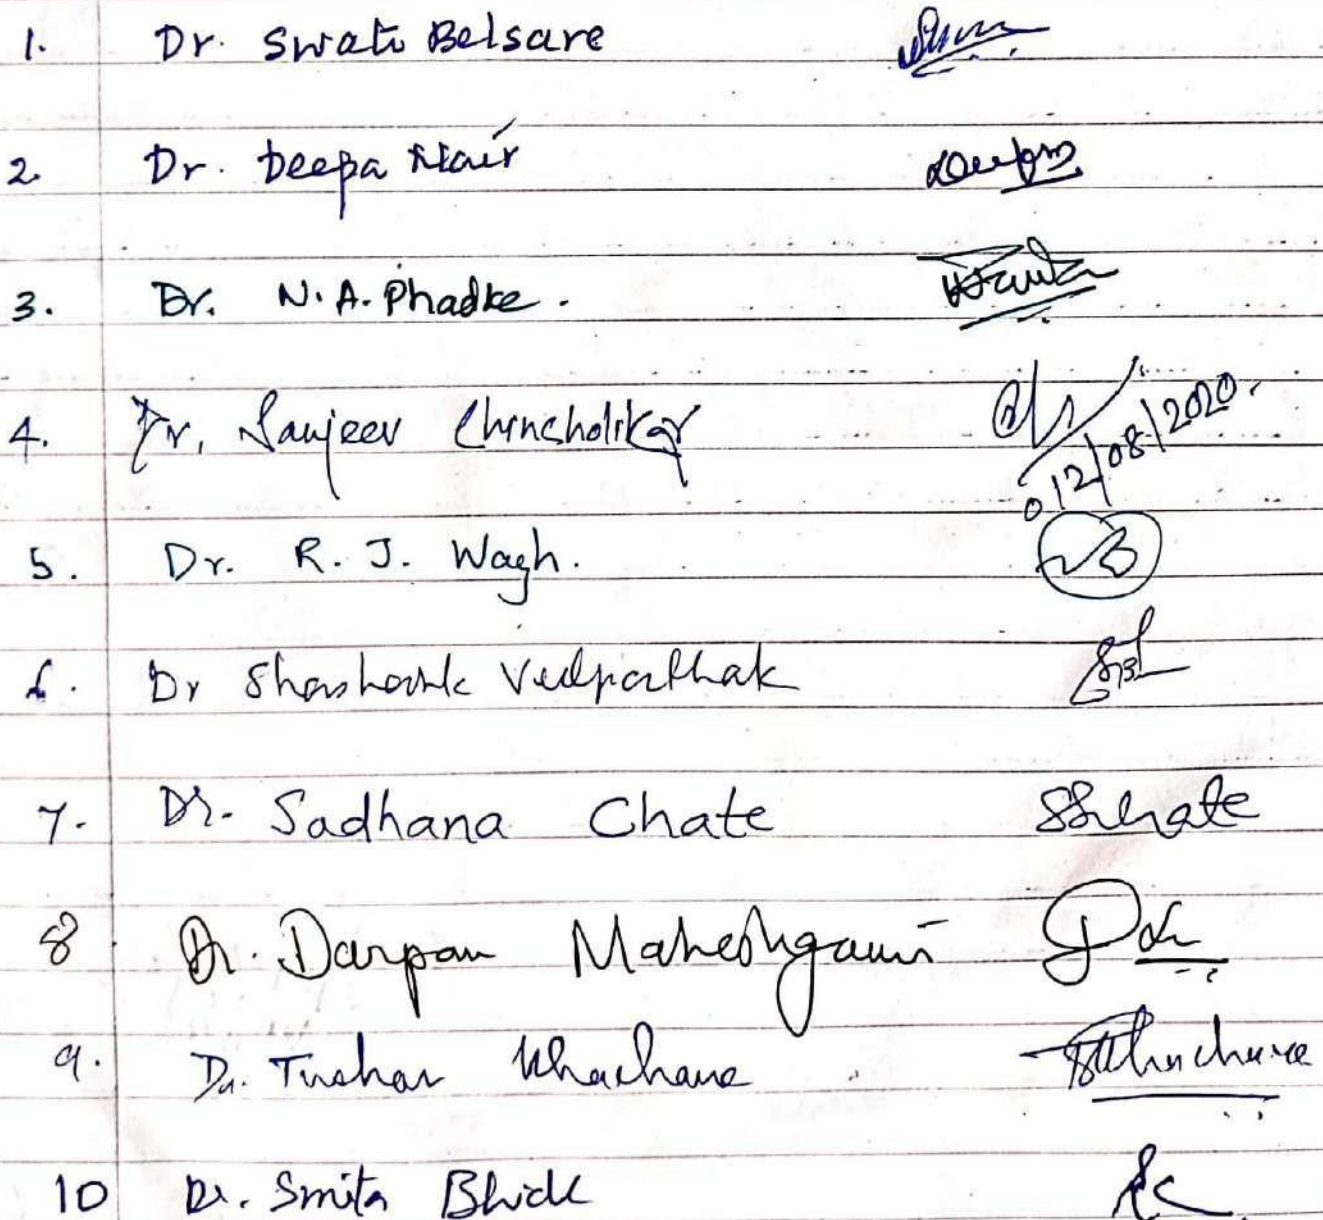 1. Dr. Swati Belsare
2. Dr. Deepa Nair
3. Dr. N. A. Phadke.
4. Dr. Sanjeev Chincholikar
12/08/2020.
5. Dr. R. J. Wagh.
6. Dr Shashank Vedpathak
7. Dr. Sadhana Chate SSChate
8 Dr. Darpan Maheshgauri
9. Dr. Tushar Khachane
10 Dr. Smita Bhide